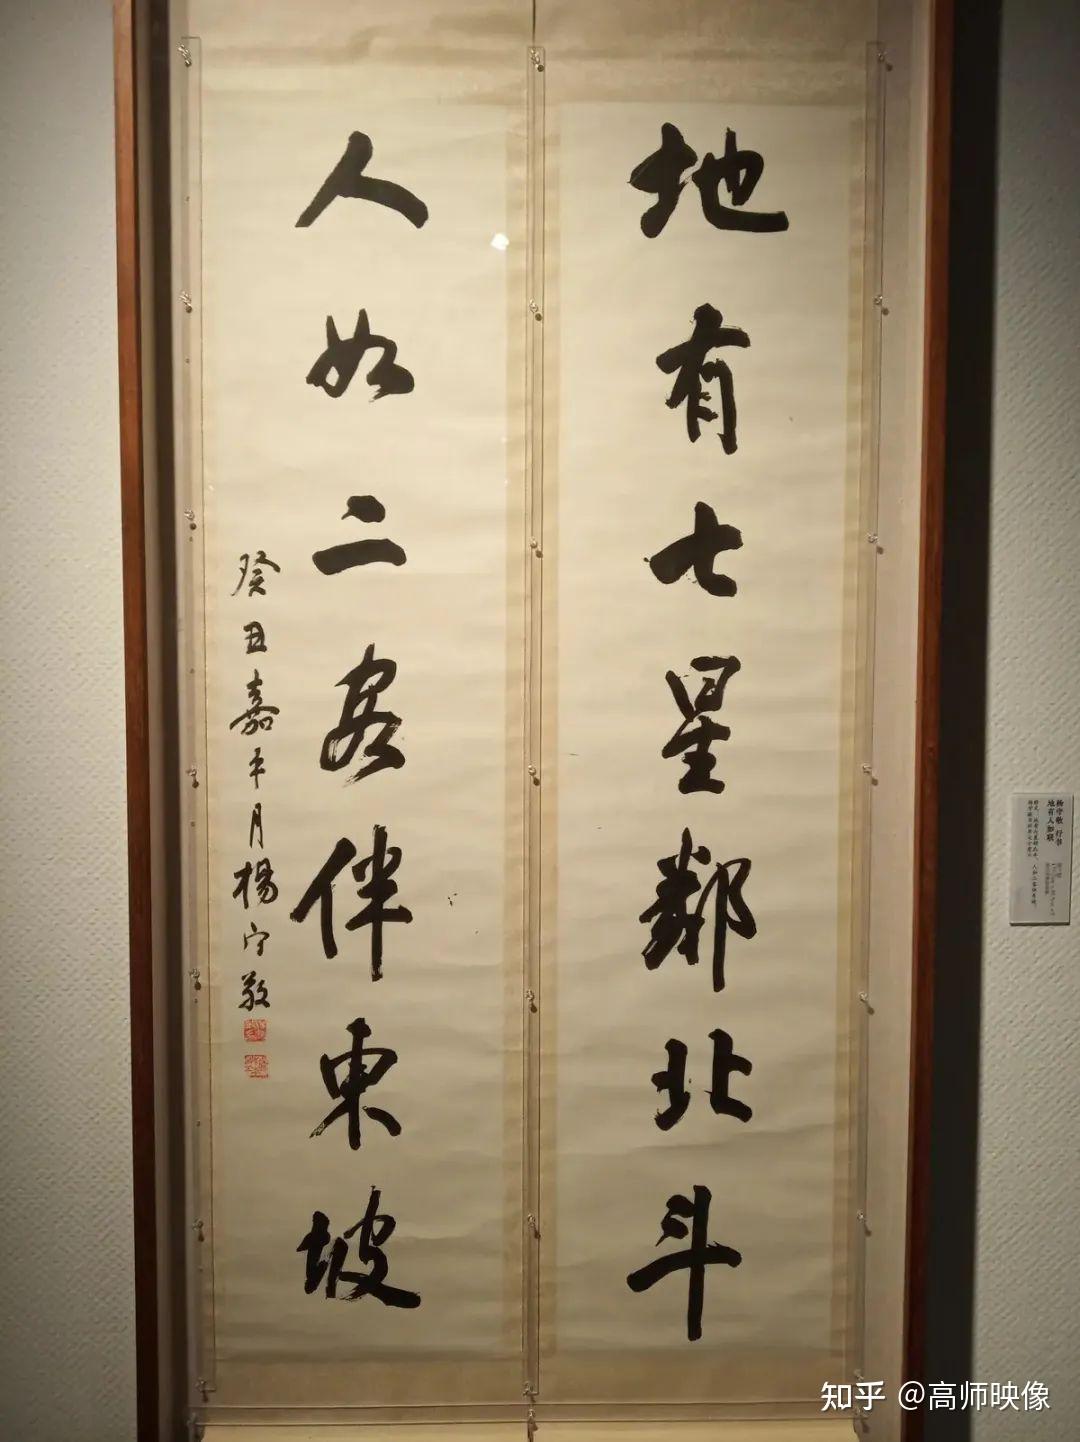 地有七星鄰北斗
人如二客伴東坡
癸丑嘉平月楊守敬
杨守敬 行书
地有人如联
知乎 @高师映像